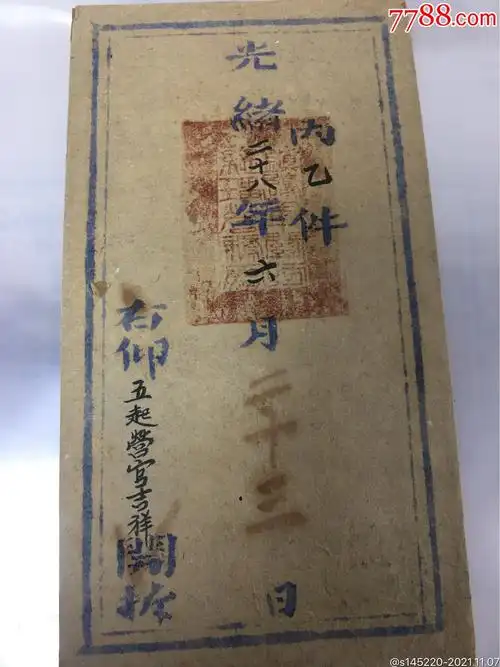 7788.com
丙乙件
光緒二十八年六月二十三日
右仰五起營官吉祥開拆
@s145220-2021.11.07